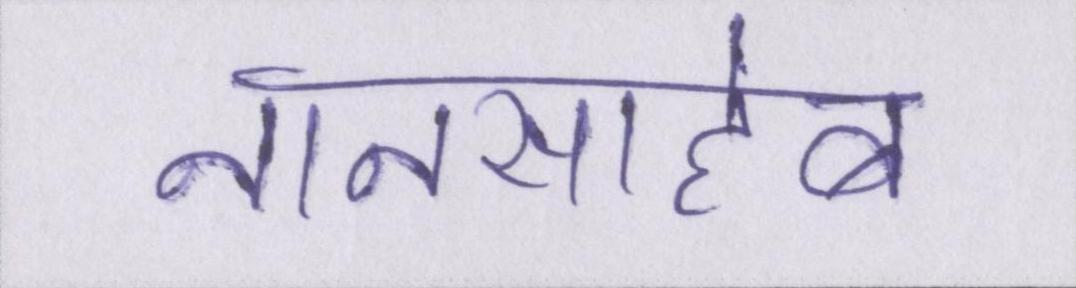 नानसाहेब